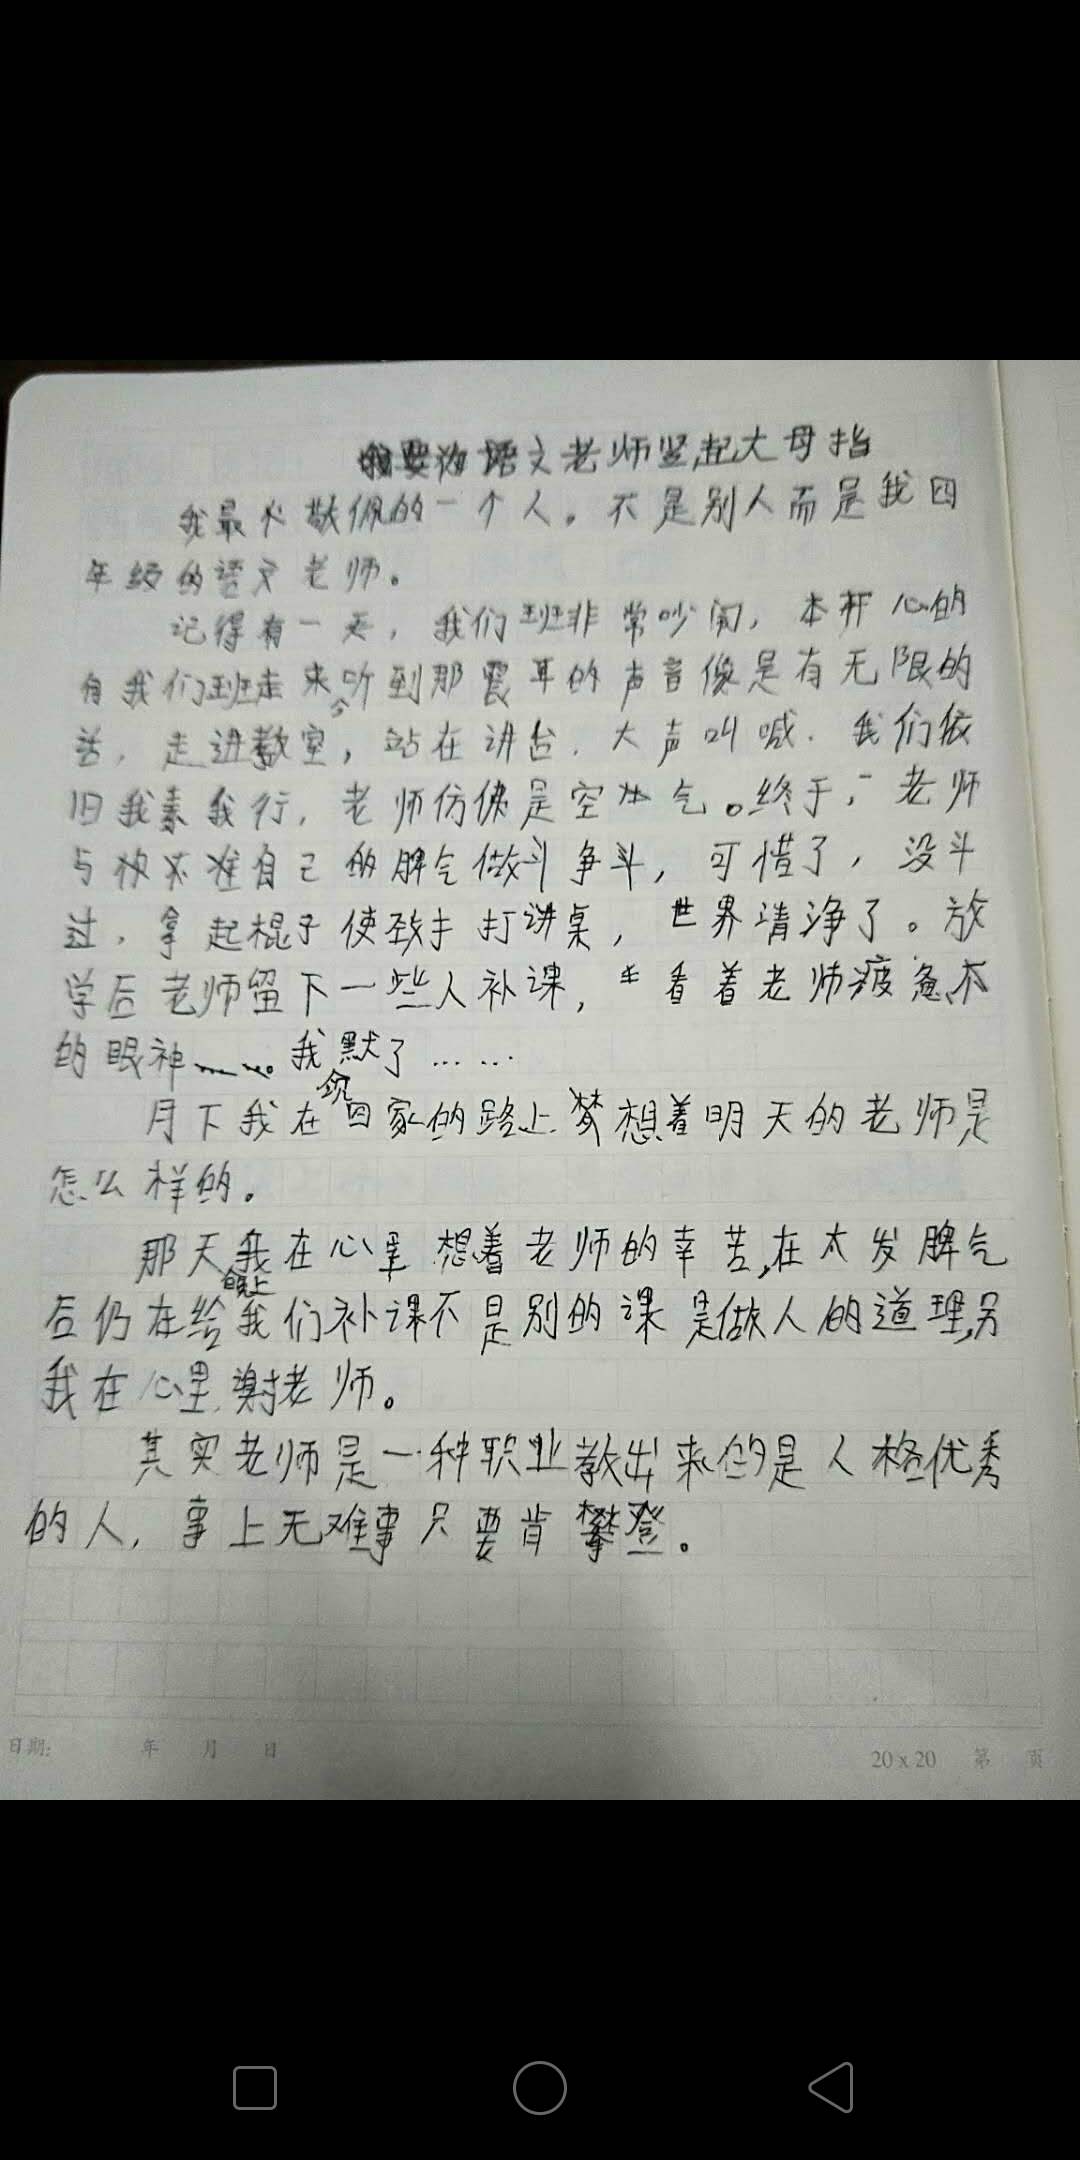 我要为语文老师竖起大母指
我最敬佩的一个人。不是别人而是我四
年级的语文老师。
记得有一天，我们班非常吵闹，本开心的
向我们班走来听到那震耳的声音像是有无限的
苦，走进教室，站在讲台．大声叫喊．我们依
旧我素我行，老师仿佛是空气。终于，老师
与自己的脾气做斗争斗，可惜了，没斗
过，拿起棍子使致打讲桌，世界清净了。放
学后老师留下一些人补课，看着老师疲惫不
的眼神 我沉默了……
月下我在回家的路上梦想着明天的老师是
怎么样的。
那天晚上我在心里想着老师的幸苦,在大发脾气
后仍在给我们补课不是别的课是做人的道理,另
我在心里谢老师。
其实老师是一种职业教出来的是人格优秀
的人，事上无难事只要肯攀登。
日期: 年 月 日
20x20 第 页